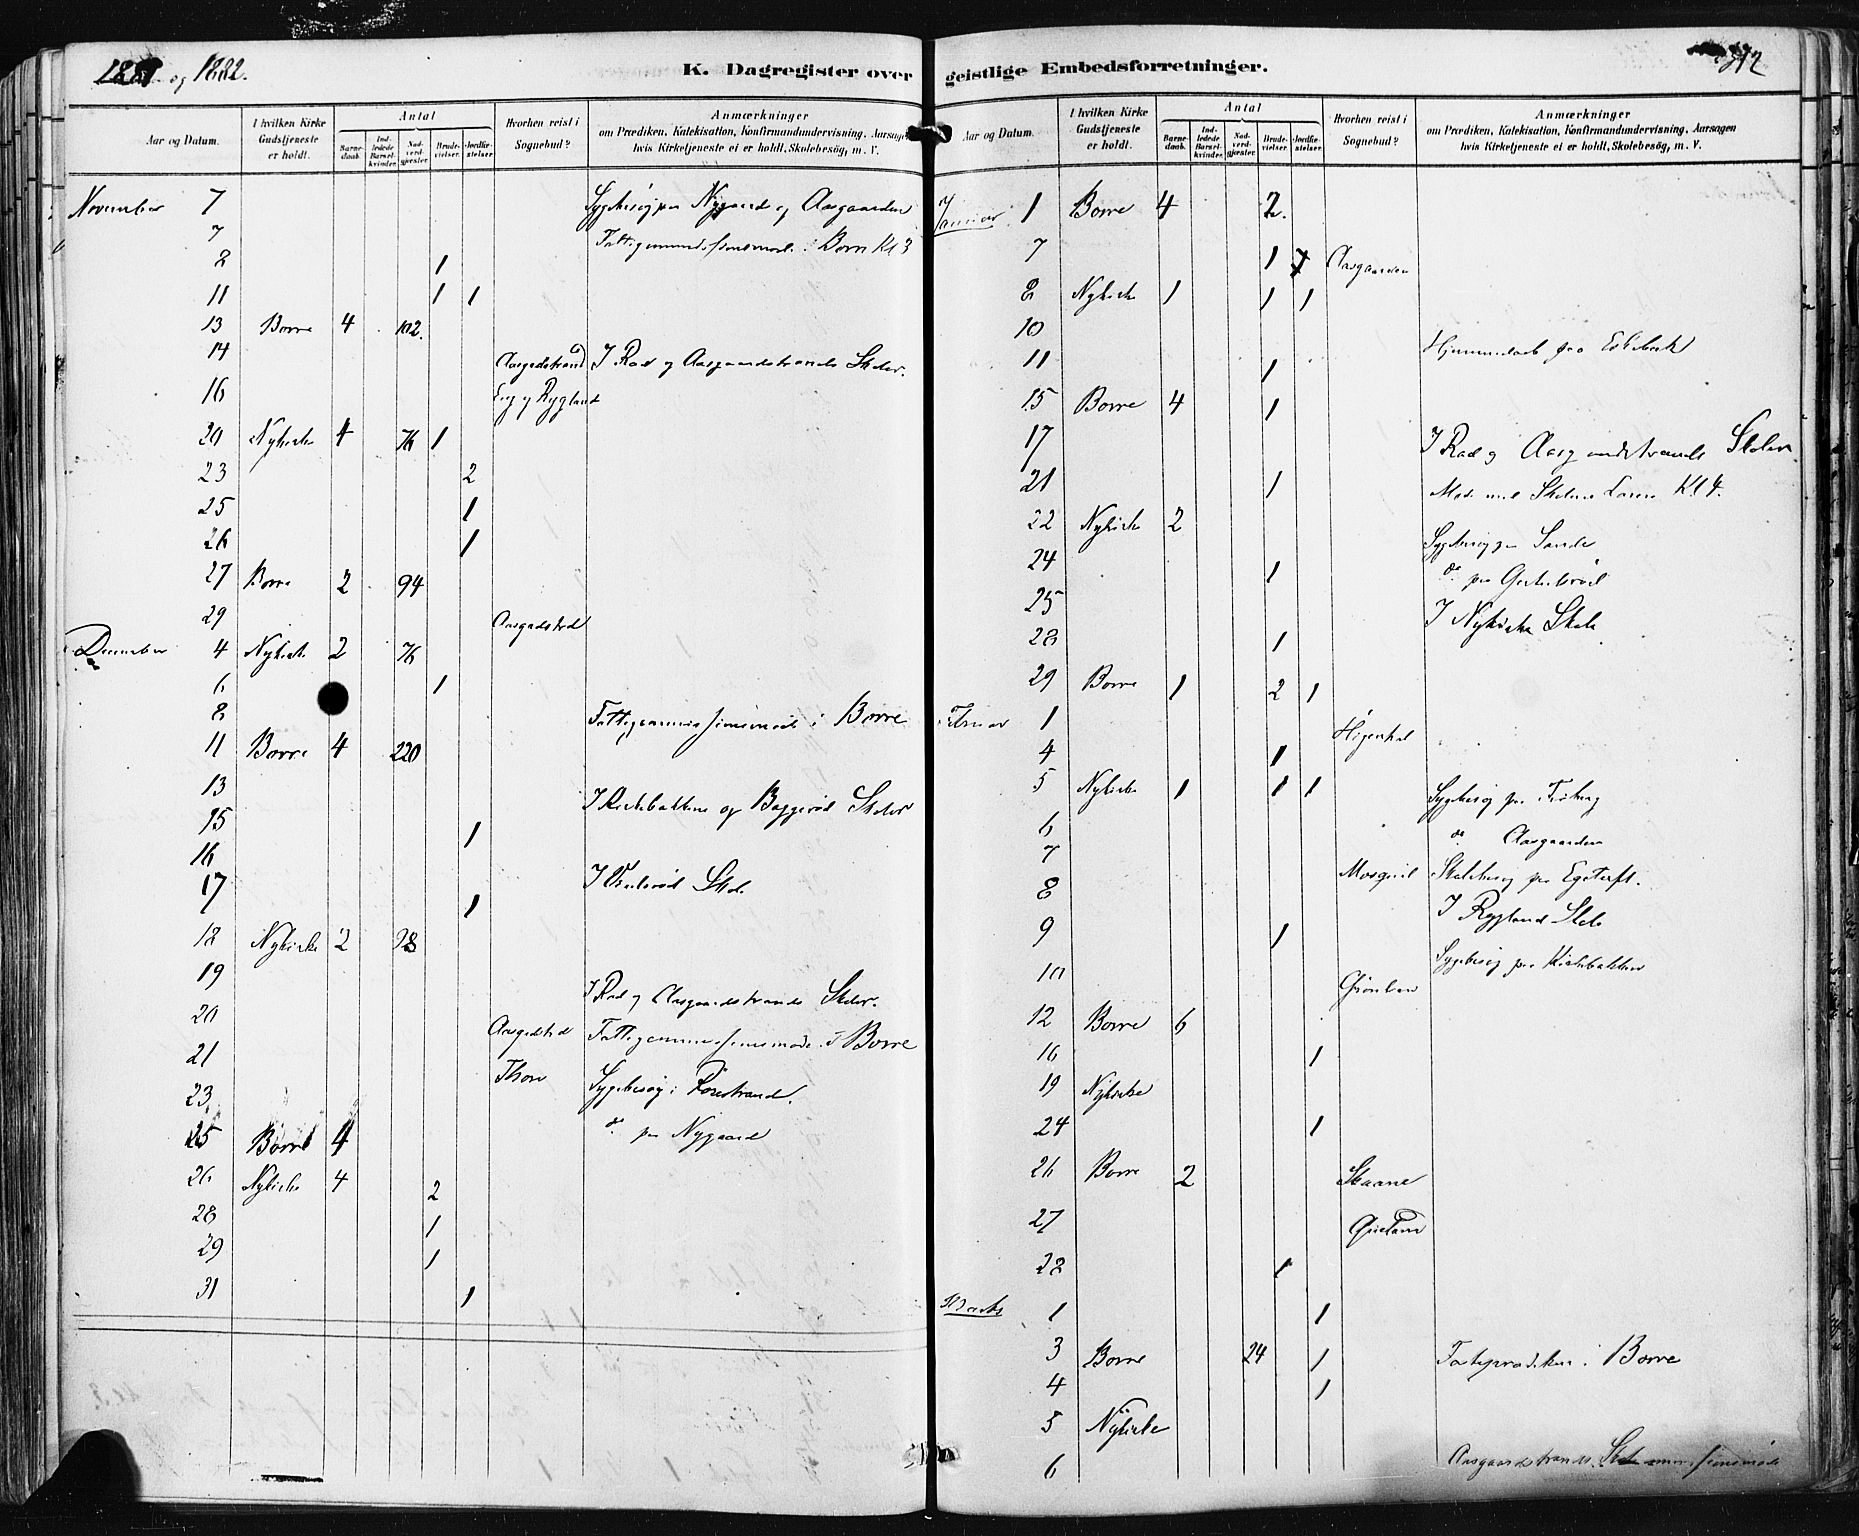 1881 og 1882.
K. Dagregister over geistlige Embedsforretninger.
392
Aar og Datum. I hvilken Kirke Gudstjeneste er holdt. Antal Barnedaab. Indledede Barselkvinder. Nadverdgjester. Brudevielser. Jordfæstelser. Hvorhen reist i Sognebud? Anmærkninger om Prædiken, Katekisation, Konfirmandundervisning, Aarsagen hvis Kirketjeneste ei er holdt, Skolebesög, m. V.
November 7 Sygebesög paa Nygaard og Aasgaarden
7 Fattigcommissionsmöde i Borre Kl 3
8 1
11 1 1
13 Borre 4 102.
14 Aasgadstrand I Rad og Aasgaardstrands Skoler.
16 Eeg og Rygland
20 Nykirke 4 76 1
23 2
25 1
26 1
27 Borre 2 94
29 Aasgadstrd
December 4 Nykirke 2 76
6 1
8 Fattigcommissionsmöde i Borre
11 Borre 4 220
13 I Kirkebakkens og Baggeröd Skoler
15 1
16
17 1 Skole
18 Nykirke 2 98
19 I Rad og Aasgaardstrands Skoler.
20 Aasgadstrd Fattigcommissionsmöde i Borre
21 Thon Sygebesög i
23 do paa Nygaard
25 Borre 4
26 Nykirke 4 2
28 1
29 1
31 1
Aar og Datum. I hvilken Kirke Gudstjeneste er holdt. Antal Barnedaab. Indledede Barselkvinder. Nadverdgjester. Brudevielser. Jordfæstelser. Hvorhen reist i Sognebud? Anmærkninger om Prædiken, Katekisation, Konfirmandundervisning, Aarsagen hvis Kirketjeneste ei er holdt, Skolebesög, m. V.
Januar 1 Borre 4 2.
7 1 Aasgaarden
8 Nykirke 1 1 1
10 Hjemmedaab paa
11 1
15 Borre 4 1
17 I Rad og Aasgaardstrands Skoler
21 1 Möde med Kl 4.
22 Nykirke 2
24 1 Sygebesög paa Sande
25 do paa
28 1 I Nykirke Skole
29 Borre 1 2 1
Februar 1
4 1
5 Nykirke 1 1 1 Sygebesög paa Fröberg
6 do Aasgaarden
7
8 Skolebesög paa
9 1 I Rygland Skole
10 Sygebesög paa Kirkebakken
12 Borre 6
16 1
19 Nykirke
24 1
26 Borre 2 Skaane
27
28 1
Marts 1 1
3 Borre 24 1 Fasteprædiken i Borre
4 1
5 Nykirke
6 Aasgaardstrands Skolecommissionsmöde